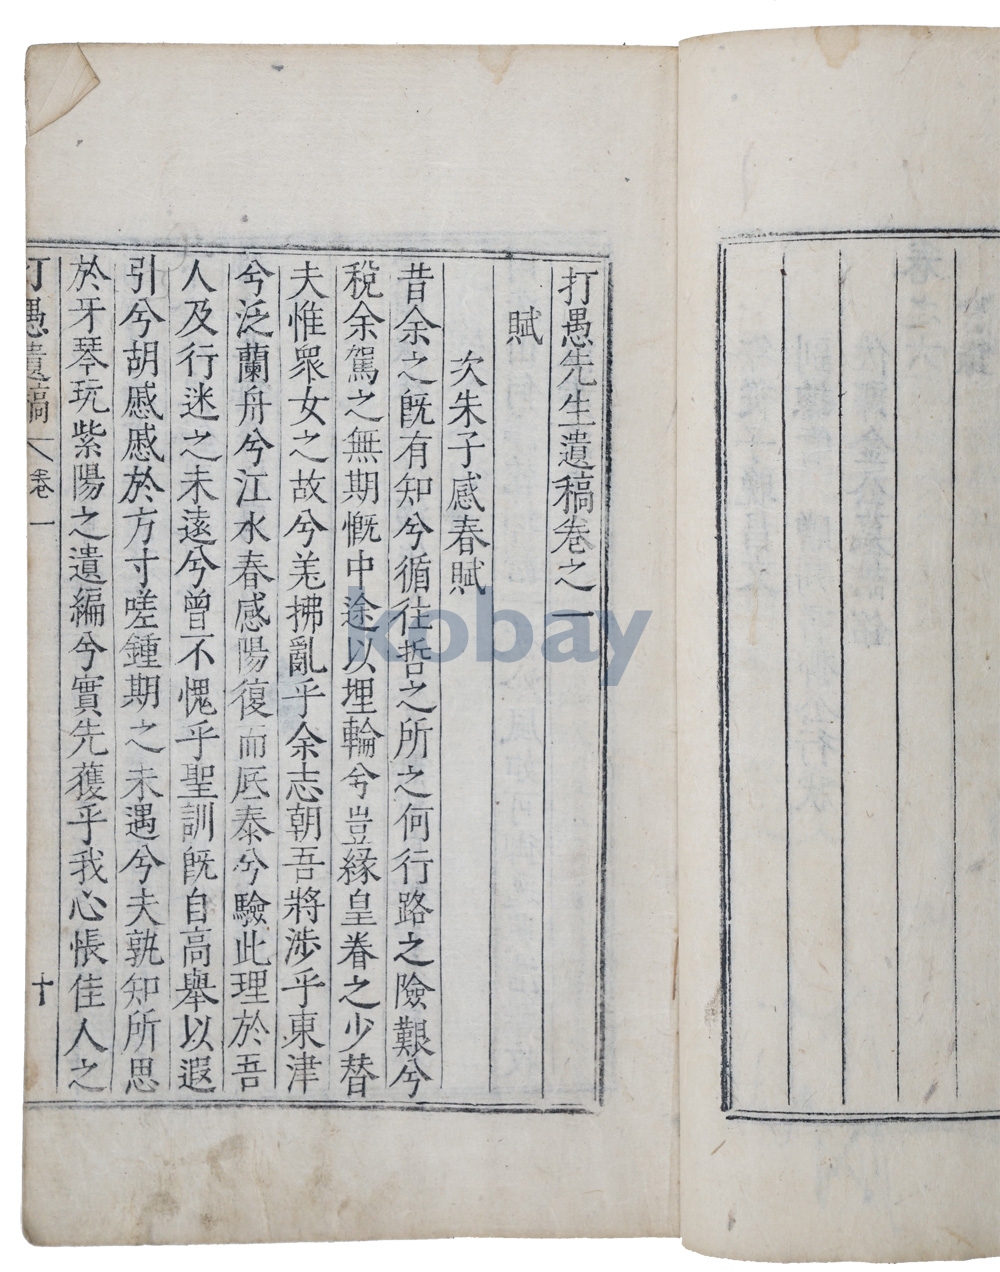 打愚先生遺稿卷之一
賦
次朱子感春賦
昔余之旣有知兮循往哲之所之何行路之險艱兮
稅余駕之無期慨中途以埋輪兮豈緣皇眷之少替
夫惟衆女之故兮羌拂亂乎余志朝吾將涉乎東津
兮泛蘭舟兮江水春感陽復而底泰兮驗此理於吾
人及行迷之未遠兮曾不愧乎聖訓旣自高擧以遐
引兮胡慼慼於方寸嗟鍾期之未遇兮夫孰知所思
於牙琴玩紫陽之遺編兮實先獲乎我心悵佳人之
打愚遺稿 卷一 十
kobay